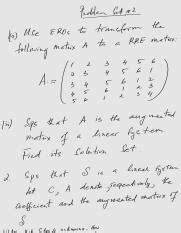 Problem Set #2
(a) Use EROs to transform the
following matrix A to a RRE matrix:
A = ( 1 2 3 4 5 6
2 3 4 5 6 1
3 4 5 6 1 2
4 5 6 1 2 3
5 6 1 2 3 4 )
(b) Sps that A is the augmented
matrix of a linear system.
Find its solution set.
2. Sps that S is a linear system
let C, A denote respectively the
coefficient and the augmented matrix of
S